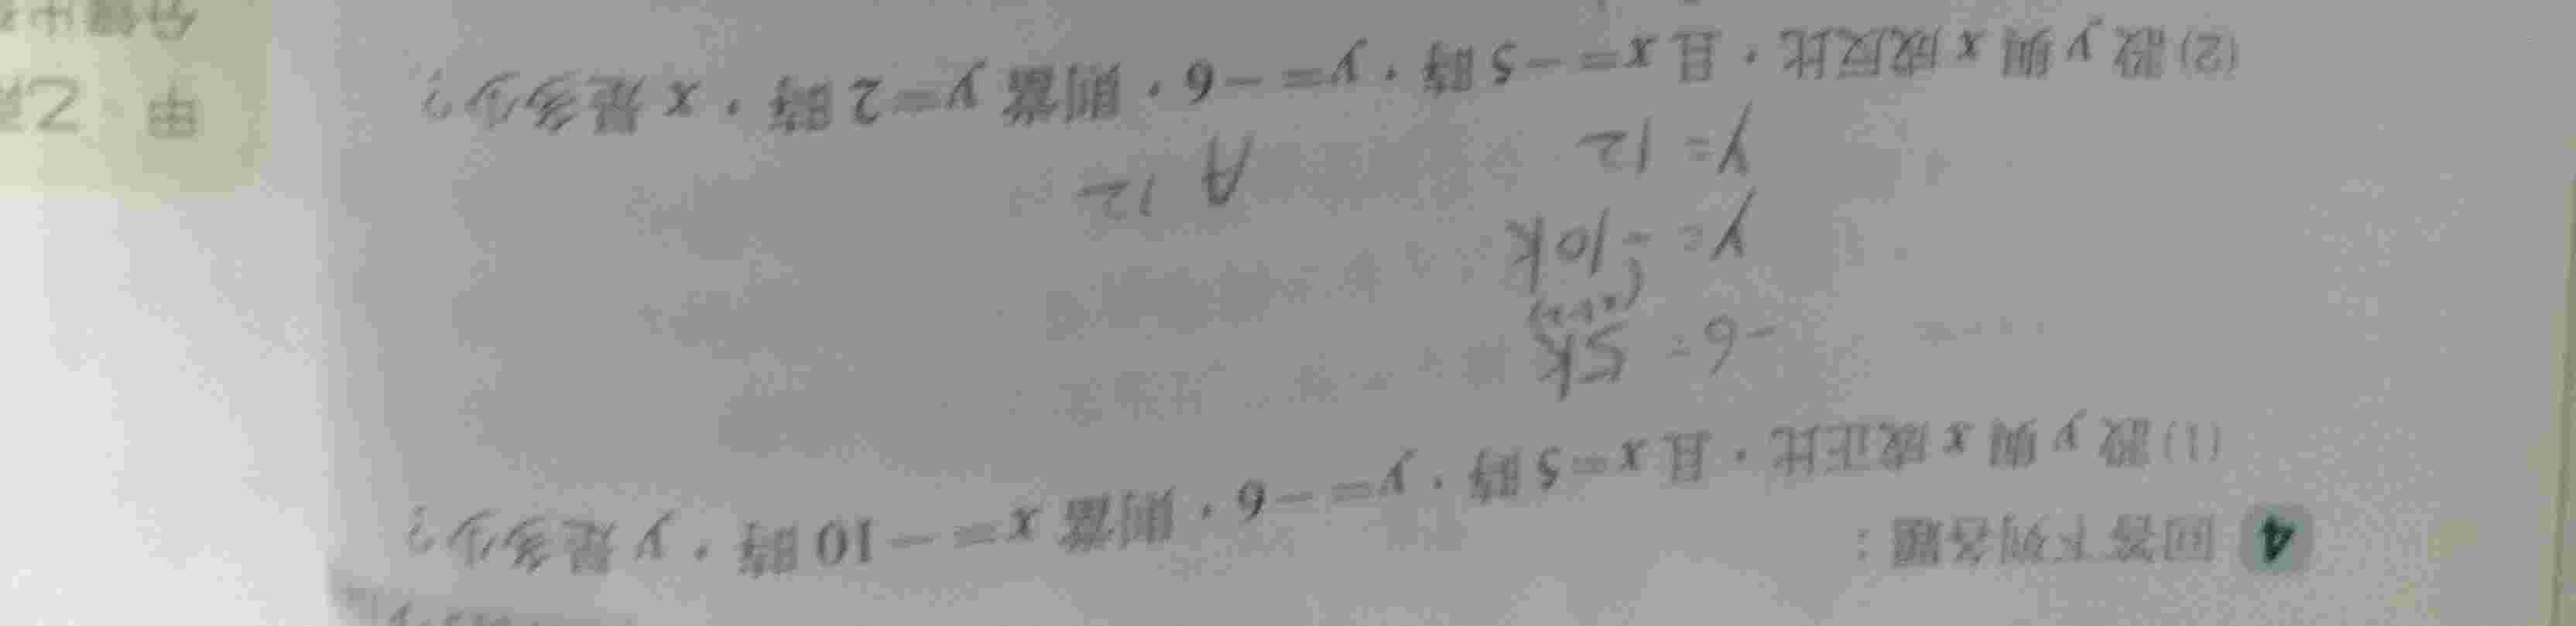 4 回答下列各題：
(1) 設 y 與 x 成正比，且 x=5 時，y=-6，則當 x=-10 時，y 是多少？
-6=5k
y=-10k
y=12
A 12
(2) 設 y 與 x 成反比，且 x=-5 時，y=-6，則當 y=2 時，x 是多少？